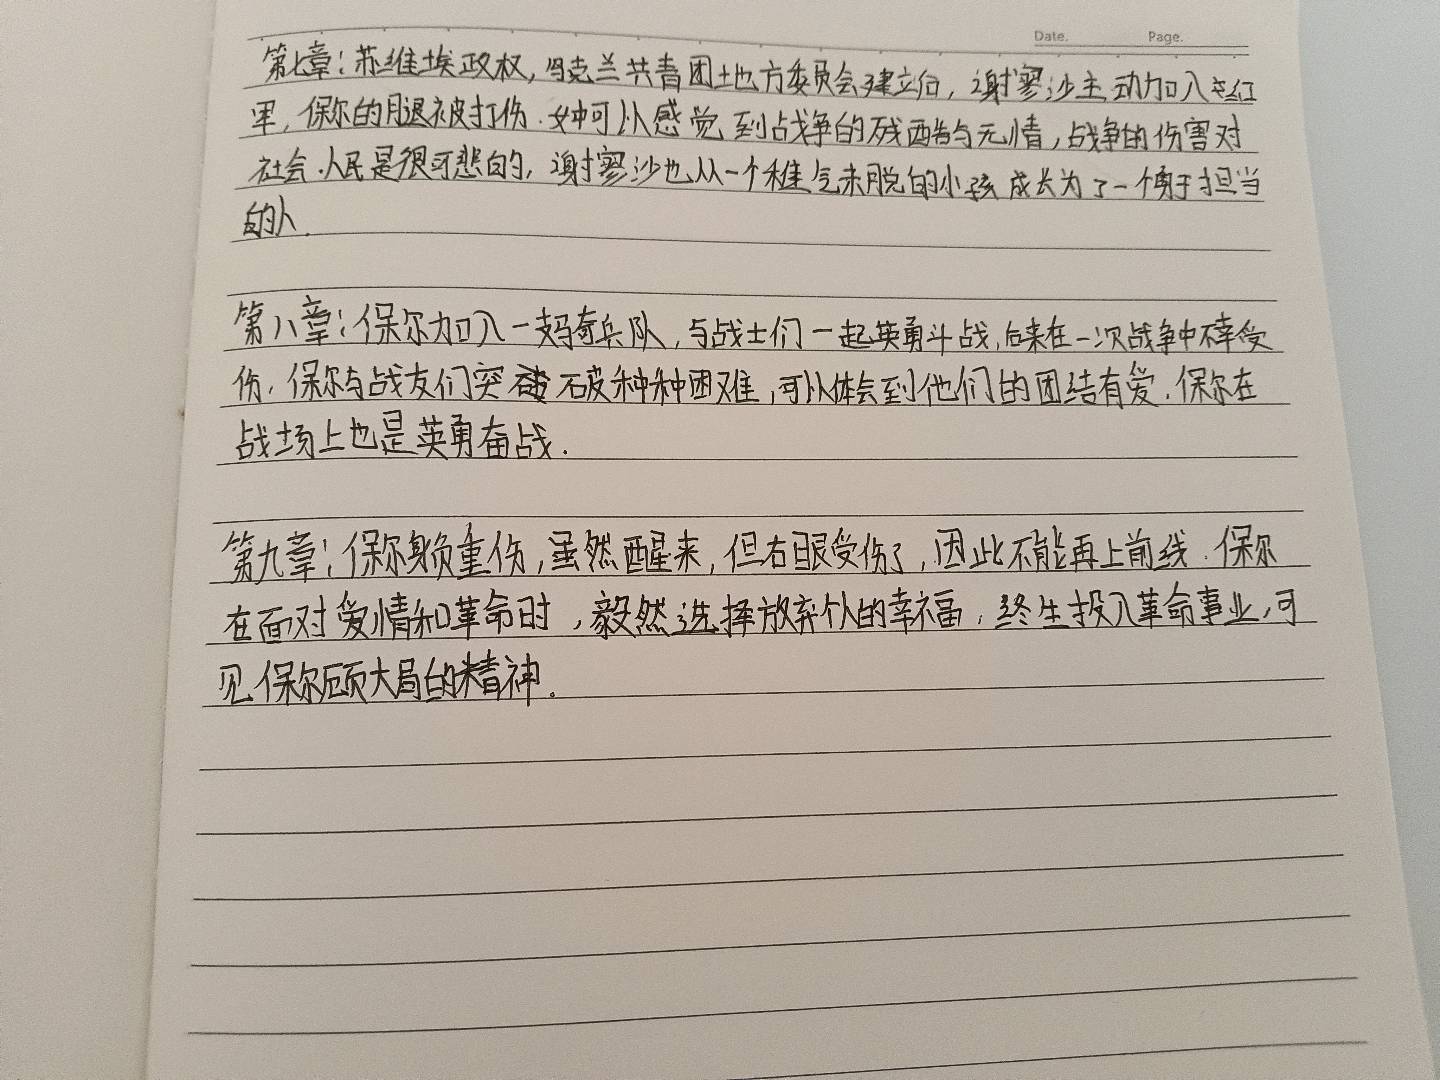 Date. Page.
第七章：苏维埃政权，乌克兰共青团土也方委员会建立后，谢寥沙主动加入红
军，保尔的腿被打伤.女中可以感觉到战争的残酷与无情，战争的伤害对
社会.人民是很可悲的，谢寥沙也从一个稚气未脱的小孩成长为了一个勇于担当
的人.
第八章：保尔加入一支骑兵队，与战士们一起英勇斗战，后来在一次战争中不幸受
伤，保尔与战友们突破种种困难，可以体会到他们的团结有爱.保尔在
战场上也是英勇奋战.
第九章：保尔身负重伤，虽然醒来，但右眼受伤了，因此不能再上前线.保尔
在面对爱情和革命时，毅然选择放弃个人的幸福，终生投入革命事业，可
见保尔顾大局的精神.